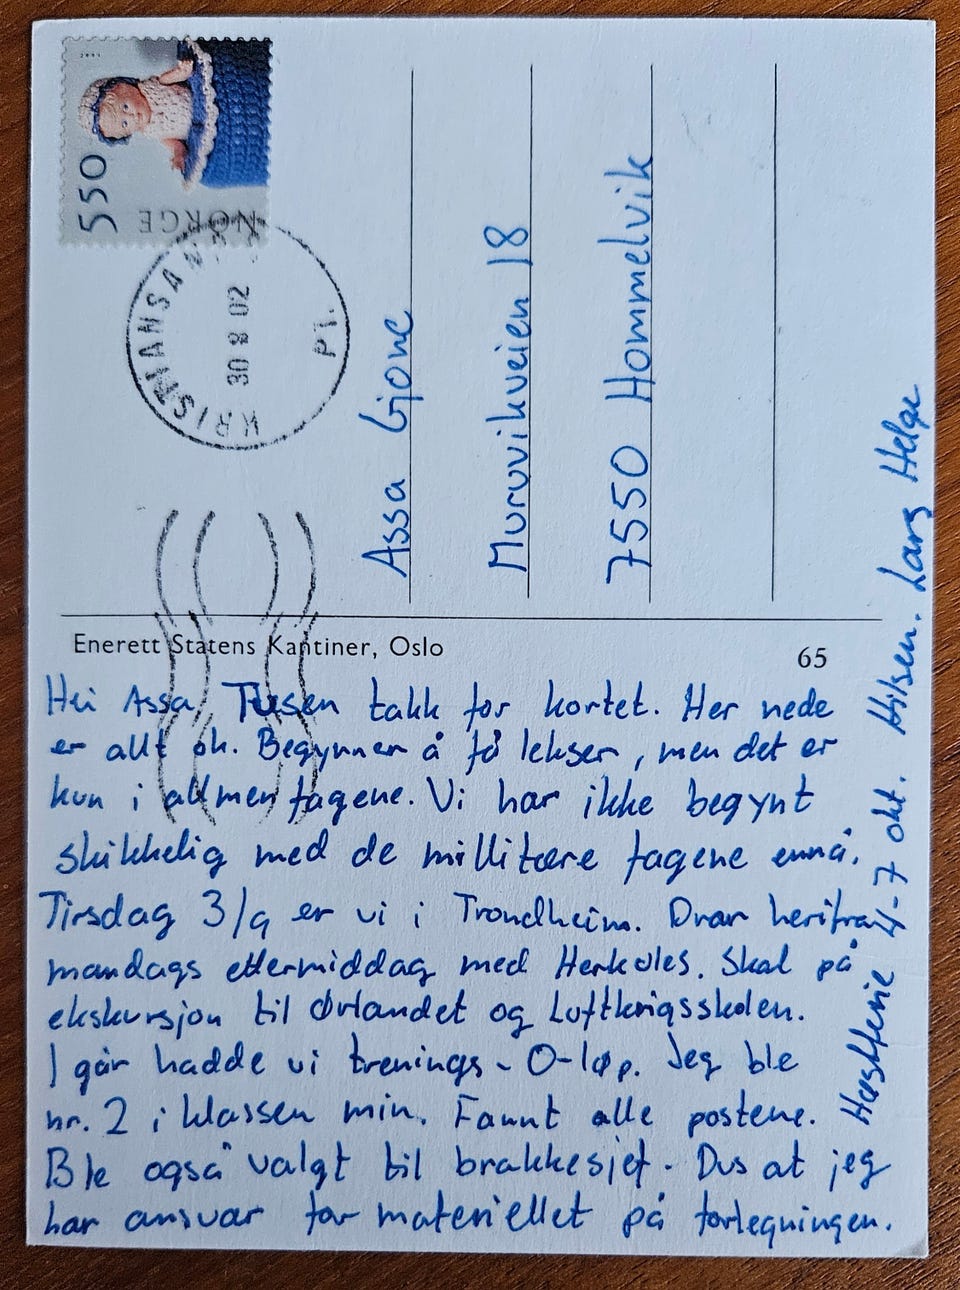 2001
5 50
NORGE
KRISTIANSAND
30 8 02
P1.
Assa Gjone
Muruvikveien 18
7550 Hommelvik
Enerett Statens Kantiner, Oslo
65
Hei Assa, Tusen takk for kortet. Her nede
er allt ok. Begynner å få lekser, men det er
kun i allmenfagene. Vi har ikke begynt
skikkelig med de millitære fagene ennå.
Tirsdag 3/9 er vi i Trondheim. Drar herifra
mandags ettermiddag med Herkules. Skal på
ekskursjon til Ørlandet og Luftkrigsskolen.
I går hadde vi trenings-O-løp. Jeg ble
nr. 2 i klassen min. Fannt alle postene.
Ble også valgt til brakkesjef. Dvs at jeg
har ansvar for materiellet på forlegningen.
Høstferie 4-7 okt. Hilsen. Lars Helge